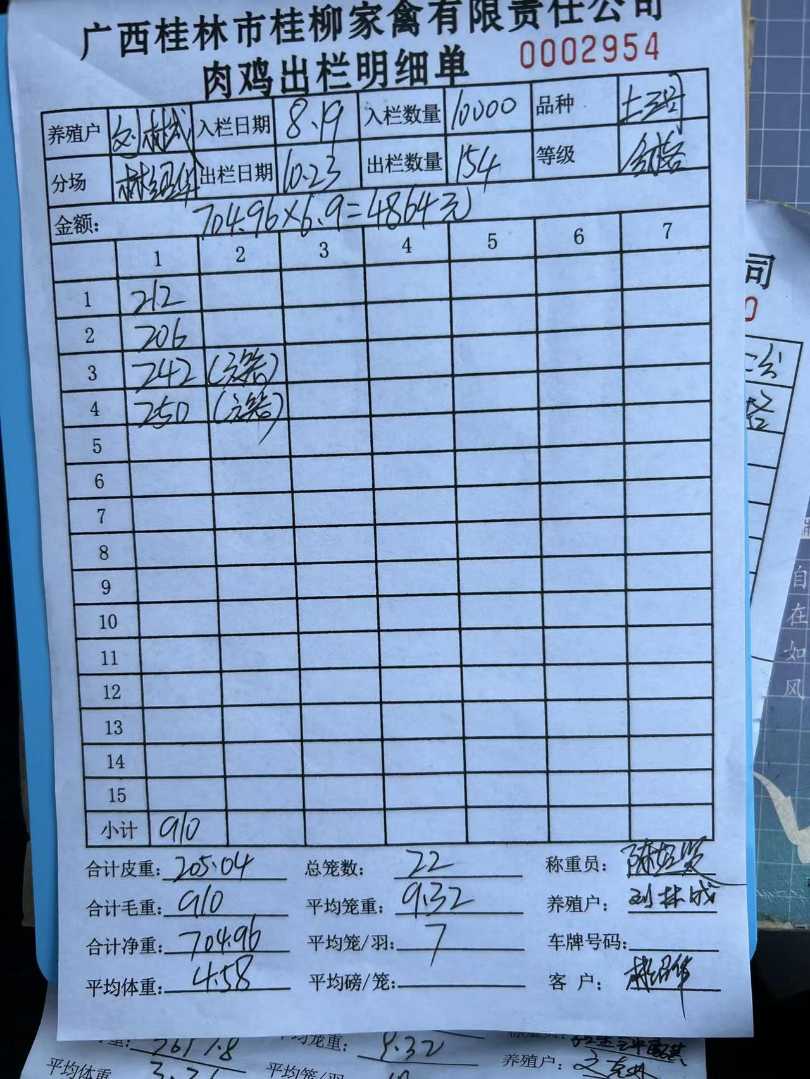 广西桂林市桂柳家禽有限责任公司
肉鸡出栏明细单 0002954
养殖户 刘林成 入栏日期 8.19 入栏数量 10000 品种
分场 出栏日期 10.23 出栏数量 154 等级 合格
金额: 704.96×6.9=4864元
1 2 3 4 5 6 7
1 212
2 206
3 242
4 250
5
6
7
8
9
10
11
12
13
14
15
小计 910
合计皮重: 205.04 总笼数: 22 称重员:
合计毛重: 910 平均笼重: 9.32 养殖户: 刘林成
合计净重: 704.96 平均笼/羽: 7 车牌号码:
平均体重: 4.58 平均磅/笼: 客 户:
司
0
自在如风
2617.8 平均笼重: 9.32
平均体重 3.31 平均笼/羽 养殖户: